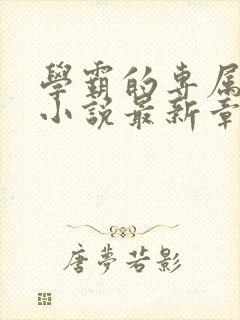 學霸的專属
小說最新章
唐夢若影